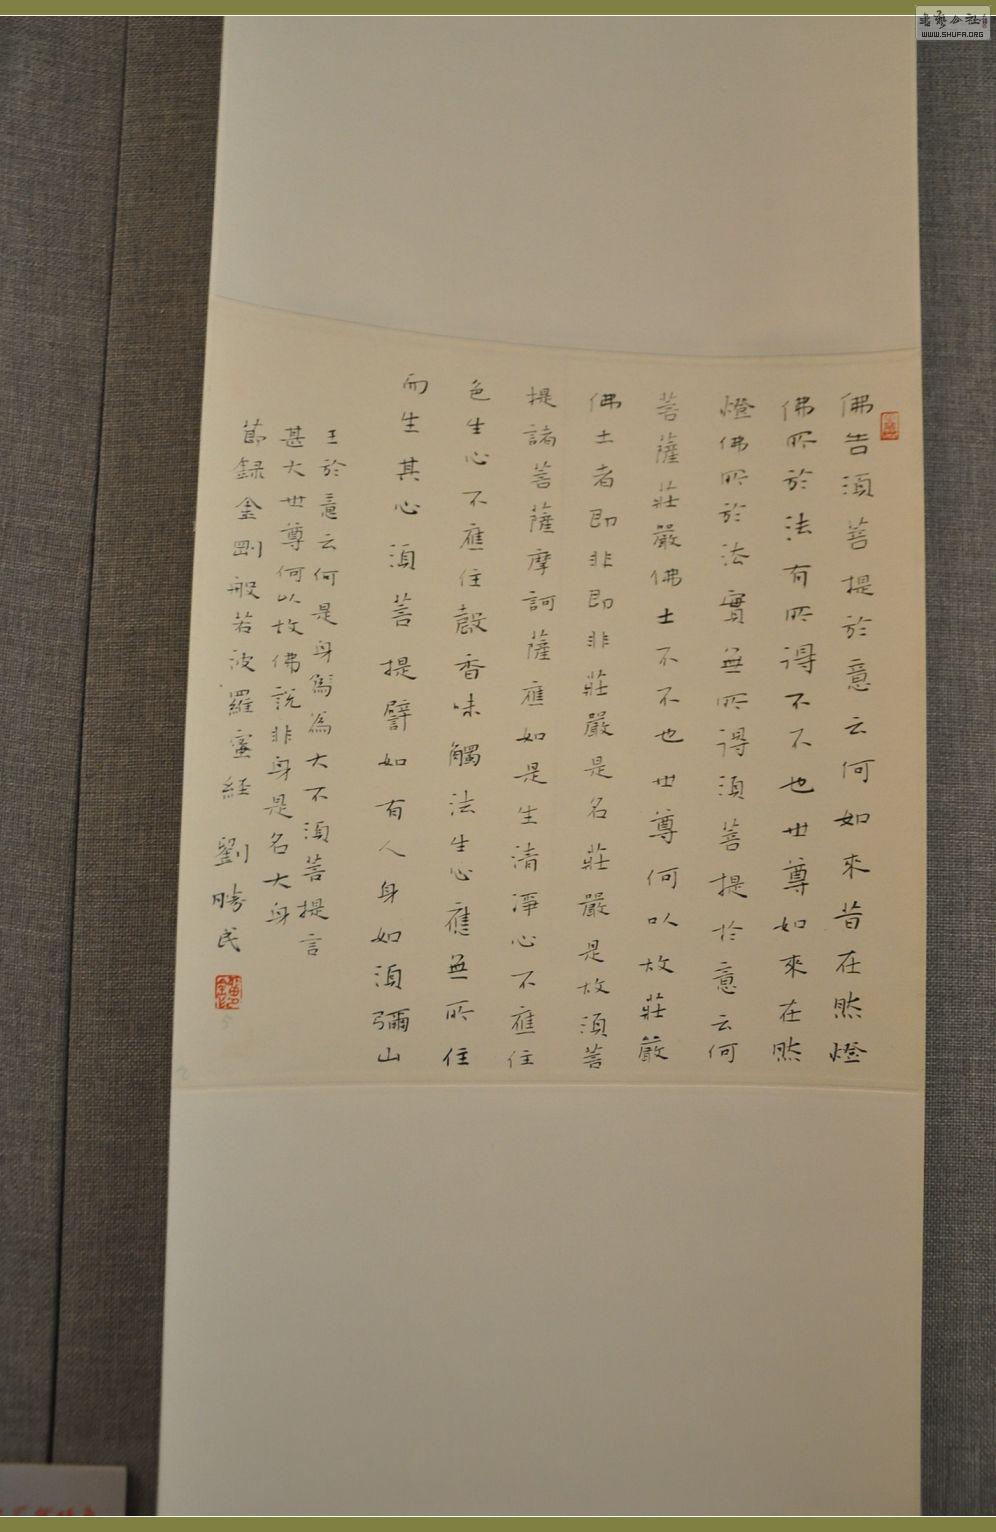 佛告須菩提於意云何如來昔在然燈
佛所於法有所得不不也世尊如來在然
燈佛所於法實無所得須菩提於意云何
菩薩莊嚴佛土不不也世尊何以故莊嚴
佛土者即非即非莊嚴是名莊嚴是故須菩
提諸菩薩摩訶薩應如是生清淨心不應住
色生心不應住聲香味觸法生心應無所住
而生其心須菩提譬如有人身如須彌山
王於意云何是身為為大不須菩提言
甚大世尊何以故佛說非身是名大身
節録金剛般若波羅蜜経 劉勝民
WWW.SHUFA.ORG